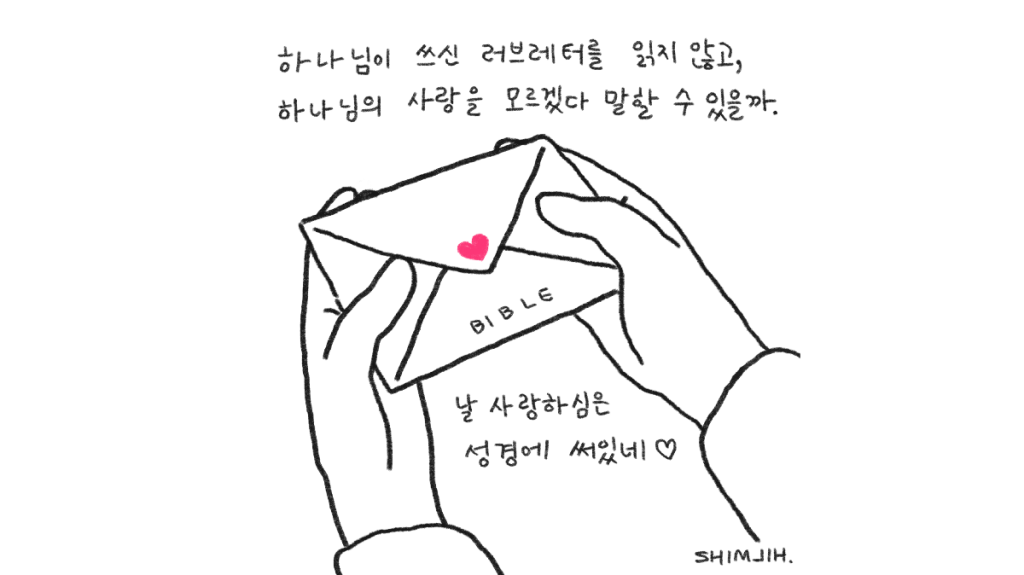 하나님이 쓰신 러브레터를 읽지 않고,
하나님의 사랑을 모르겠다 말할 수 있을까.
BIBLE
날 사랑하심은
성경에 써있네♡
SHIMJIH.